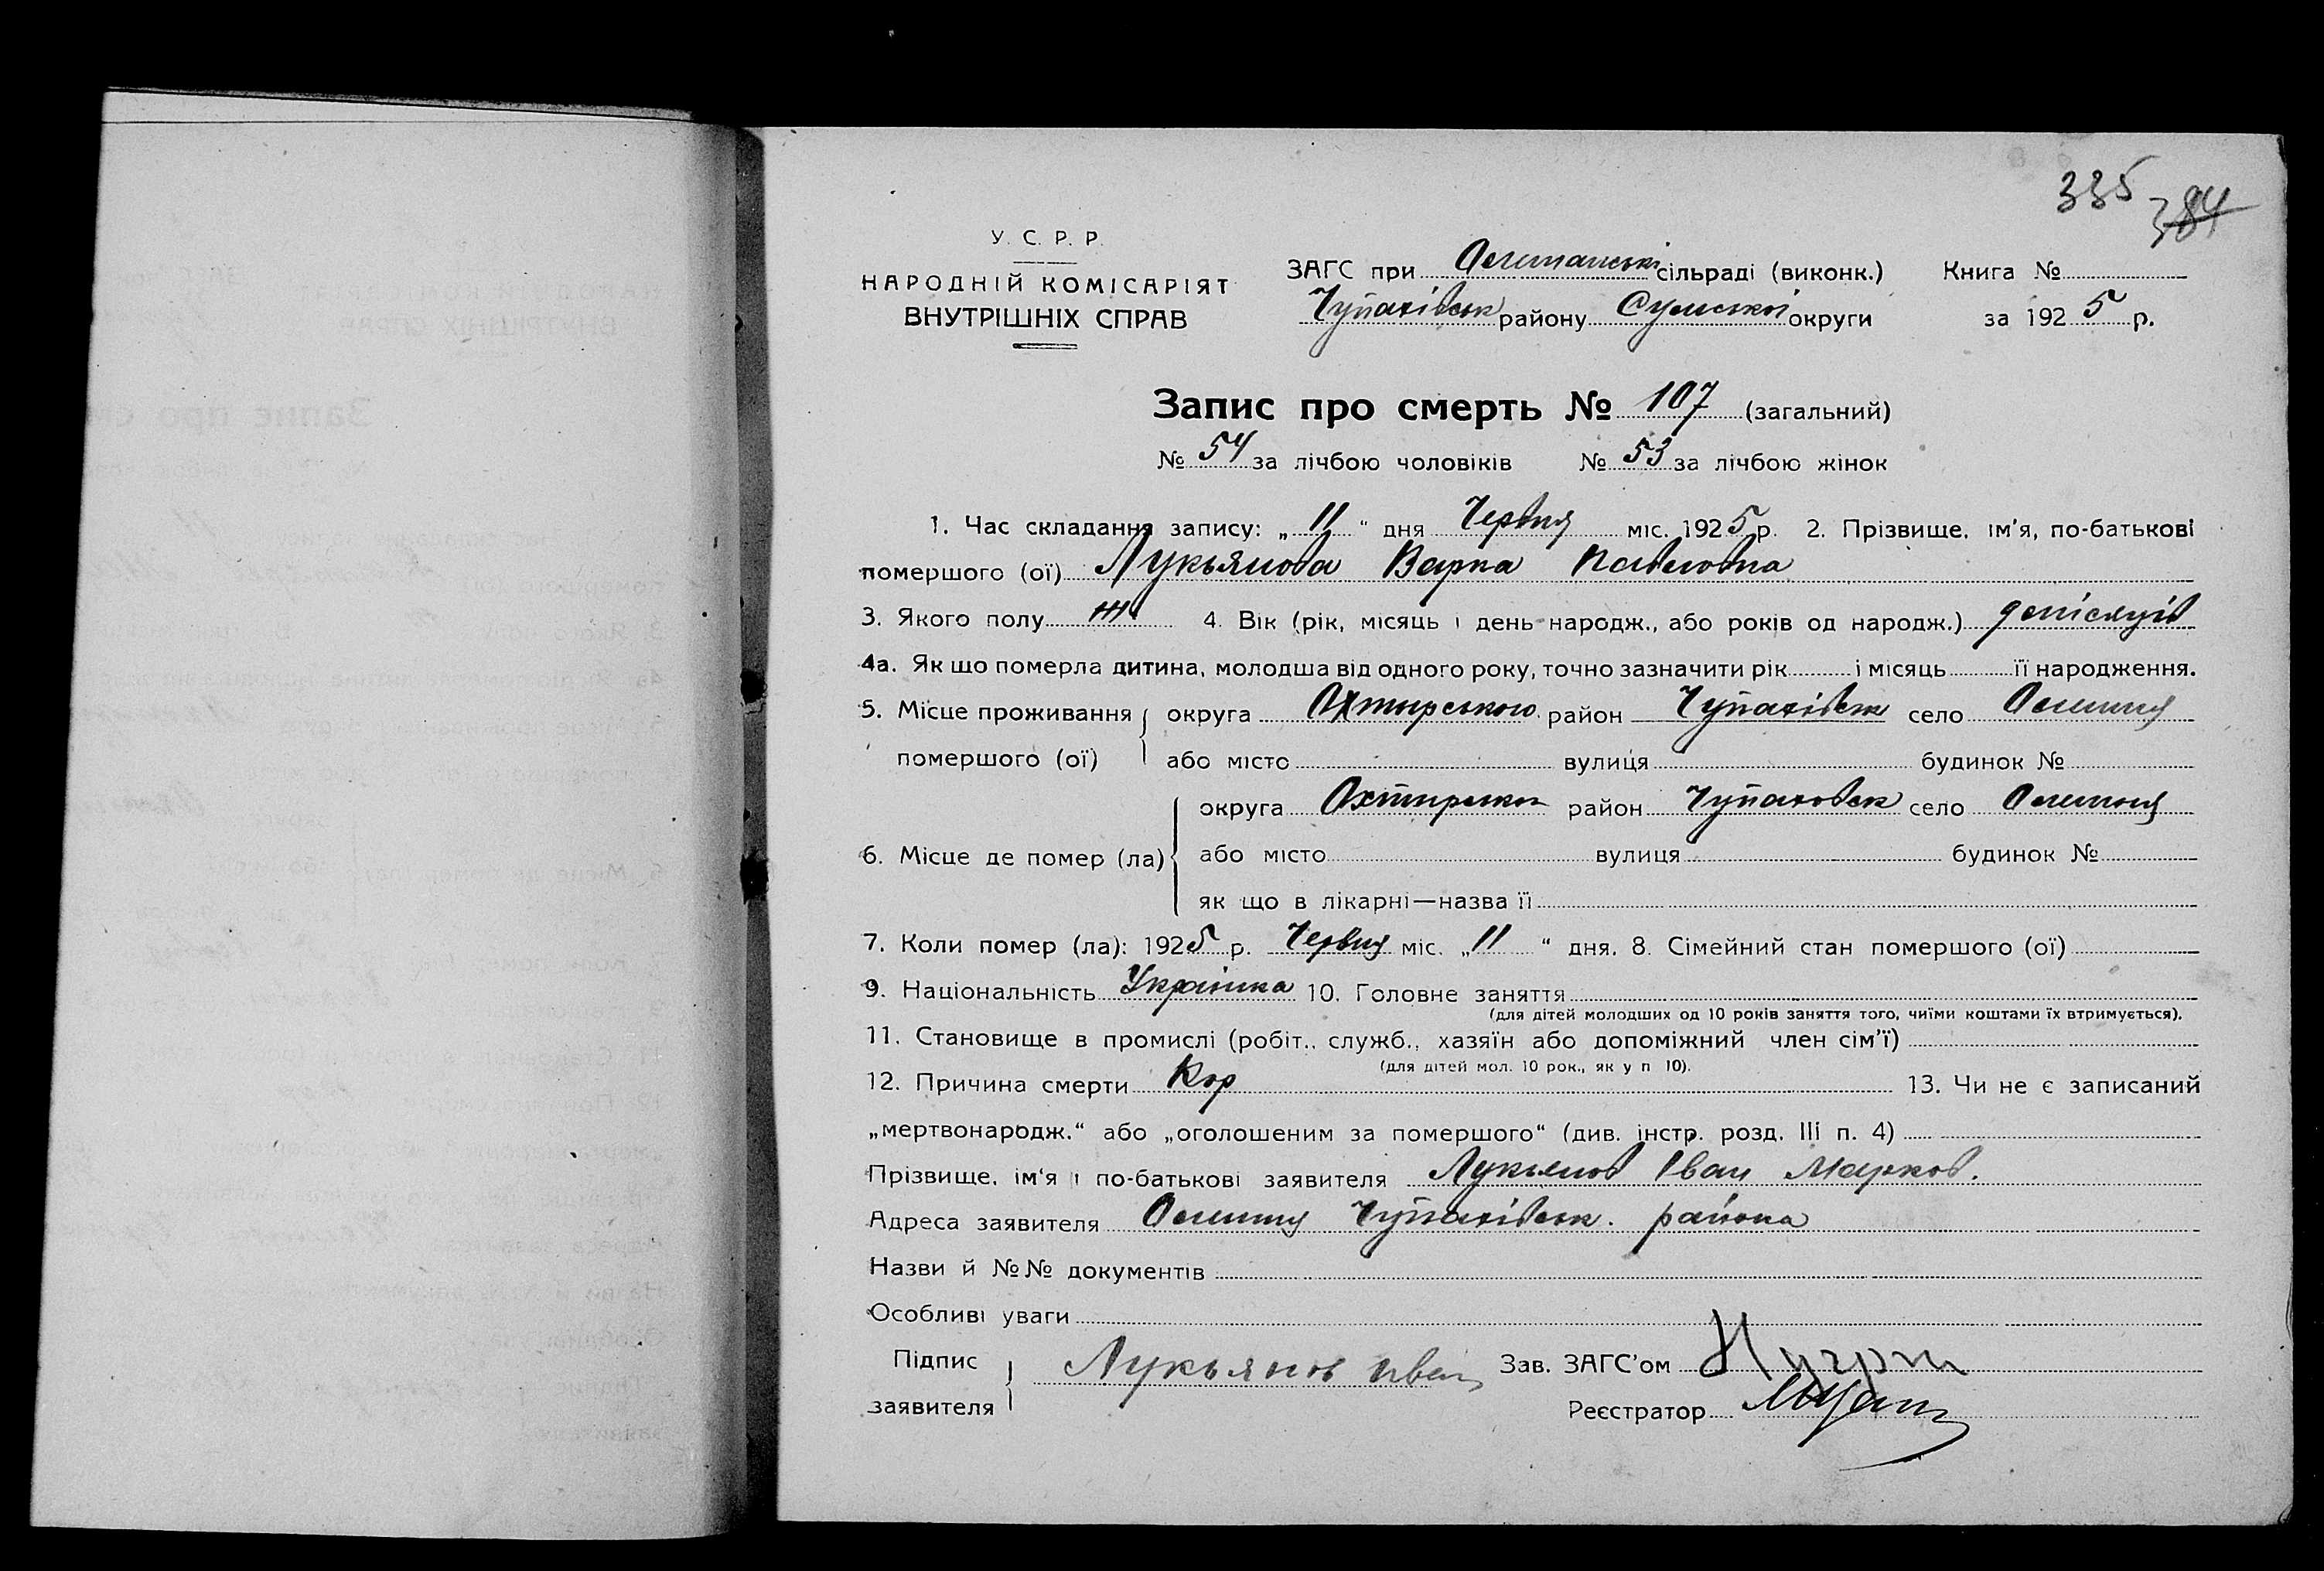 335 384
У. С. Р. Р.
НАРОДНІЙ КОМІСАРІЯТ
ВНУТРІШНІХ СПРАВ
ЗАГС при сільраді (виконк.) Книга №
Чупахівськ району Сумської округи за 1925 р.
Запис про смерть № 107 (загальний)
№ 54 за лічбою чоловіків № 53 за лічбою жінок
1. Час складання запису: „ 11 “ дня Червня міс. 1925 р. 2. Прізвище, ім'я, по-батькові
помершого (ої) Лукьянова Варка Павловна
3. Якого полу ж 4. Вік (рік, місяць і день народж., або років од народж.) 9 місяців
4а. Як що померла дитина, молодша від одного року, точно зазначити рік і місяць її народження.
5. Місце проживання округа Охтирського район Чупахівськ село Олешня
помершого (ої) або місто вулиця будинок №
округа Охтирсько район Чупаховск село Олешня
6. Місце де помер (ла) або місто вулиця будинок №
як що в лікарні—назва її
7. Коли помер (ла): 1925 р. Червня міс. „ 11 “ дня. 8. Сімейний стан помершого (ої)
9. Національність Українка 10. Головне заняття
(для дітей молодших од 10 років заняття того, чиїми коштами їх втримується).
11. Становище в промислі (робіт., служб., хазяїн або допоміжний член сім'ї)
(для дітей мол. 10 рок., як у п 10).
12. Причина смерти Кор 13. Чи не є записаний
„мертвонародж.“ або „оголошеним за помершого“ (див. інстр. розд. III п. 4)
Прізвище, ім'я і по-батькові заявителя Лукьянов Іван Марков.
Адреса заявителя Олешня Чупахівськ. района
Назви й №№ документів
Особливі уваги
Підпис
заявителя Лукьянов Иван
Зав. ЗАГС'ом
Реєстратор